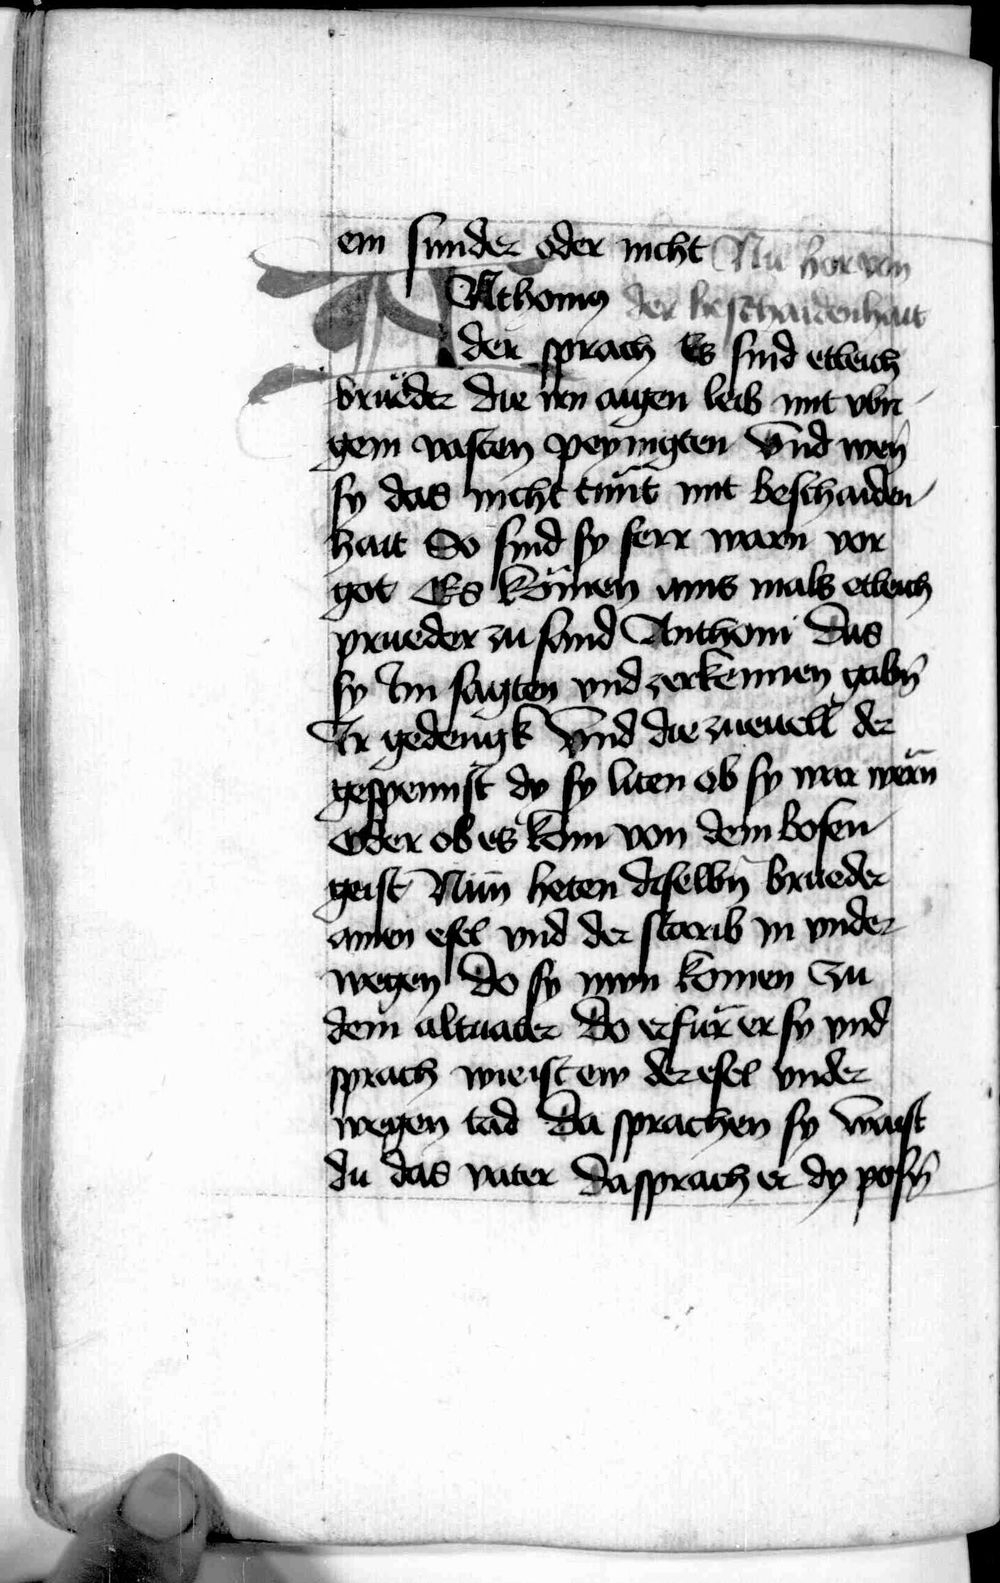 ein sunder oder nicht Nu hor von
Athonius der beschaidenhait
der sprach Es sind etleich
brueder die irn aigen leib mit vbri
gem vasten peyingten Vnd wen
sy das nicht tunt mit beschaiden
hait So sind sy ferr warn vor
got Es komen ains mals etleich
prueder zu sand Anthoni Das
sy Im sagten vnd zerkennen gabn
Ir gedengk Vnd die zueuell der
gespennst dy sy liten ob sy war wern
Oder ob es kom von dem bosen
geist Nun heten dieselbn brueder
ainen esel vnd der starib in vnder
wegen Do sy nun komen Zu
dem altuater Do erfur er sy vnd
sprach wie ist ew der esel vnder
wegen tad Da sprachen sy Waist
du das vater Da sprach er dy posn